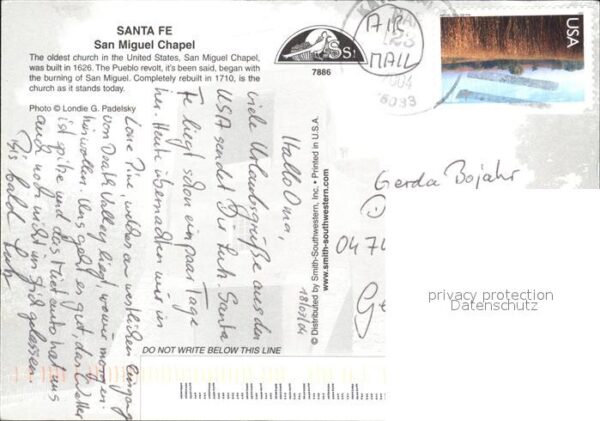 SANTA FE
San Miguel Chapel
The oldest church in the United States, San Miguel Chapel,
was built in 1626. The Pueblo revolt, it's been said, began with
the burning of San Miguel. Completely rebuilt in 1710, is the
church as it stands today.
Photo © Londie G. Padelsky
7886
SS!
AIR
MAIL
USA
Hallo Oma,
viele Urlaubsgrüße aus den
USA sendet Dir Lutz. Santa
Fe liegt schon ein paar Tage
her. Heute übernachten wir in
Lone Pine, welches am westlichen Eingang
von Death Valley liegt, wo wir morgen
hinwollen. Uns geht es gut, das Wetter
ist spitze und das Mietauto hat uns
auch noch nicht im Stich gelassen.
Bis bald Lutz
18/09/04
© Distributed by Smith-Southwestern, Inc. • Printed in U.S.A.
www.smith-southwestern.com
Gerda Bojahr
047
Ge
privacy protection
Datenschutz
DO NOT WRITE BELOW THIS LINE